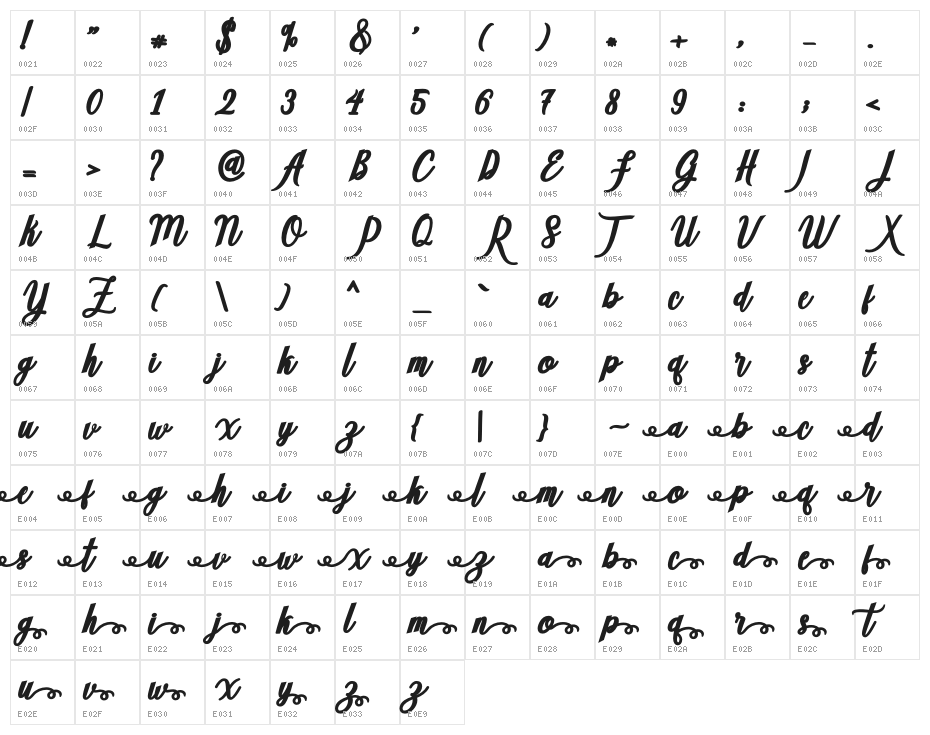 ! " # $ % & ' ( ) * + , - .
0021 0022 0023 0024 0025 0026 0027 0028 0029 002A 002B 002C 002D 002E
/ 0 1 2 3 4 5 6 7 8 9 : ; <
002F 0030 0031 0032 0033 0034 0035 0036 0037 0038 0039 003A 003B 003C
= > ? @ A B C D E F G H I J
003D 003E 003F 0040 0041 0042 0043 0044 0045 0046 0047 0048 0049 004A
K L M N O P Q R S T U V W X
004B 004C 004D 004E 004F 0050 0051 0052 0053 0054 0055 0056 0057 0058
Y Z [ \ ] ^ _ ` a b c d e f
0059 005A 005B 005C 005D 005E 005F 0060 0061 0062 0063 0064 0065 0066
g h i j k l m n o p q r s t
0067 0068 0069 006A 006B 006C 006D 006E 006F 0070 0071 0072 0073 0074
u v w x y z { | } ~ a b c d
0075 0076 0077 0078 0079 007A 007B 007C 007D 007E E000 E001 E002 E003
e f g h i j k l m n o p q r
E004 E005 E006 E007 E008 E009 E00A E00B E00C E00D E00E E00F E010 E011
s t u v w x y z a b c d e f
E012 E013 E014 E015 E016 E017 E018 E019 E01A E01B E01C E01D E01E E01F
g h i j k l m n o p q r s t
E020 E021 E022 E023 E024 E025 E026 E027 E028 E029 E02A E02B E02C E02D
u v w x y z z
E02E E02F E030 E031 E032 E033 E0E9